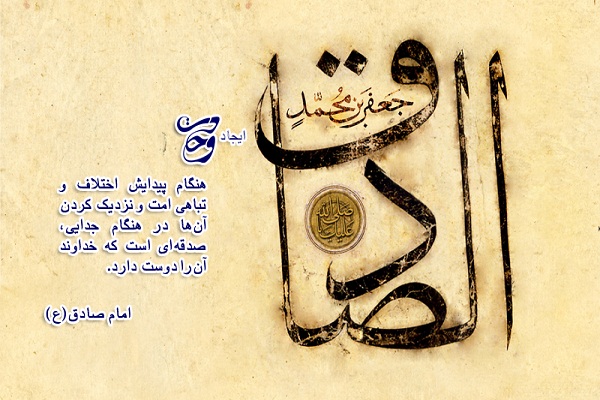 الصادق
جعفر بن محمدٍ
صلی الله علیک یا
ایجاد وحدت
هنگام پیدایش اختلاف و
تباهی امت و نزدیک کردن
آن‌ها در هنگام جدایی،
صدقه‌ای است که خداوند
آن را دوست دارد.
امام صادق(ع)